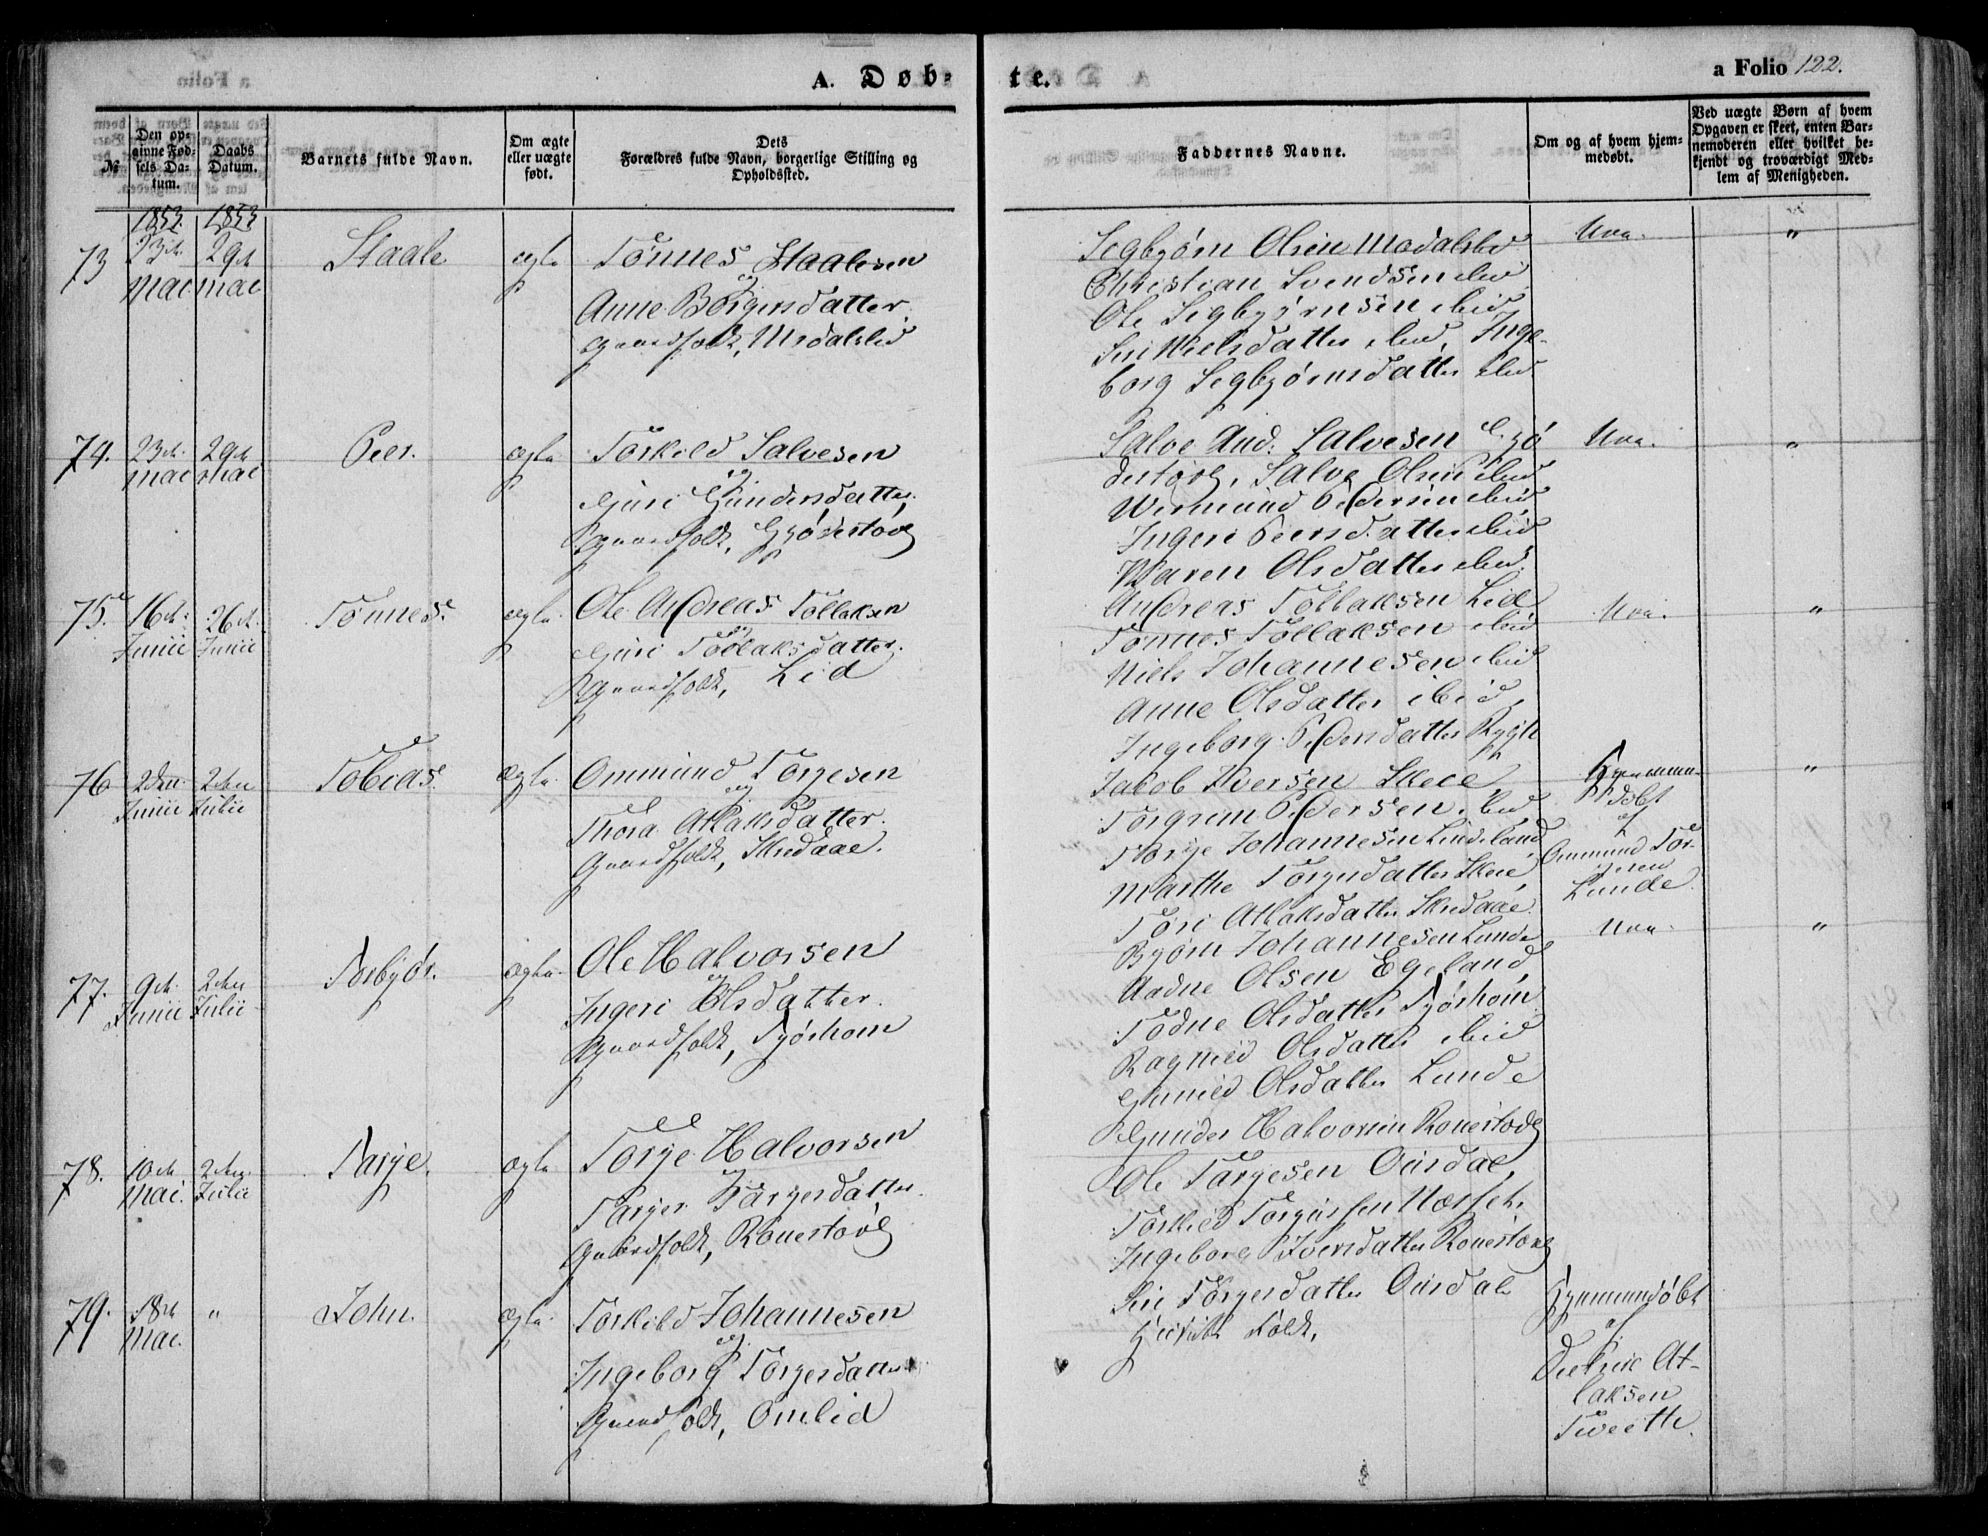 A. Døb-
te.
a Folio 122.
№
Den op-
givne Fød-
sels Da-
tum.
Daabs
Datum.
Barnets fulde Navn.
Om ægte
eller uægte
født.
Dets
Forældres fulde Navn, borgerlige Stilling og
Opholdssted.
Faddernes Navne.
Om og af hvem hjem-
medøbt.
Ved uægte Børn af hvem
Opgaven er skeet, enten Bar-
nemoderen eller hvilket be-
kjendt og troværdigt Med-
lem af Menigheden.
1853. 1853
73 23de Mai 29de Mai Staale ægte
Tønnes Staalesen
og
Anne Børgersdatter.
Gaardfolk, Mydalslid
Segbjørn Olsen
Christian Svendsen ibid
Ole Segbjørnsen ibid
Siri Nielsdatter ibid, Inge-
borg Segbjørnsdatter ibid
"
74. 23de Mai 29de Mai Peer. ægte
Torkild Salvesen
og
Guri Gundersdatter,
Gaardfolk, Gjødestøl
Salve And: Salvesen Gjø
destøl, Salve Olsen ibid
Wermund Pedersen ibid
Ingeri Peersdatter ibid
Maren Olsdatter ibid.
"
75. 16de Junii 26de Junii Tønnes. ægte
Ole Andreas Tollaksen
og
Guri Tollaksdatter.
Gaardfolk, Lid
Andreas Tollaksen Lid
Tønnes Tollaksen ibid
Niels Johannesen ibid
Anne Olsdatter ibid,
Ingeborg Pedersdatter
"
76 2den Junii 2den Julii Tobias. ægte
Ommund Torgesen
og
Thora Atlaksdatter.
Gaardfolk, Skredaae.
Jakob Iversen Skeie,
Torgrim Pedersen ibid
Torje Johannesen Lindeland
Marthe Torgersdatter Skeie,
Tori Atlaksdatter Skredaae.
Hjemme-
døbt
af
Ommund Tor-
gesen
Lunde.
"
77. 9de Junii 2den Julii Torbjør. ægte
Ole Halvorsen
og
Ingeri Olsdatter.
Gaardfolk, Tjørhom
Bjørn Johannesen Lunde
Aadne Olsen Egeland,
Todne Olsdatter Tjørhom
Ragnild Olsdatter ibid
Gunild Olsdatter Lunde
"
78. 10de Mai. 2den Julii Tarje. ægte
Torje Halvorsen
og
Tarjer Targersdatter.
Gaardfolk, Ronestøl
Gunder Halvorsen Ronestøl
Ole Targesen Ousdal,
Torkild Torgersen Næsset,
Ingeborg Iversdatter Ronestøl
Siri Torgersdatter Ousdal
79. 18de Mai. " John. ægte
Torkild Johannesen
og
Ingeborg Torgersdatter
Gaardfolk, Omlid
Hjemmedøbt
af
At-
laksen
Tveitte.